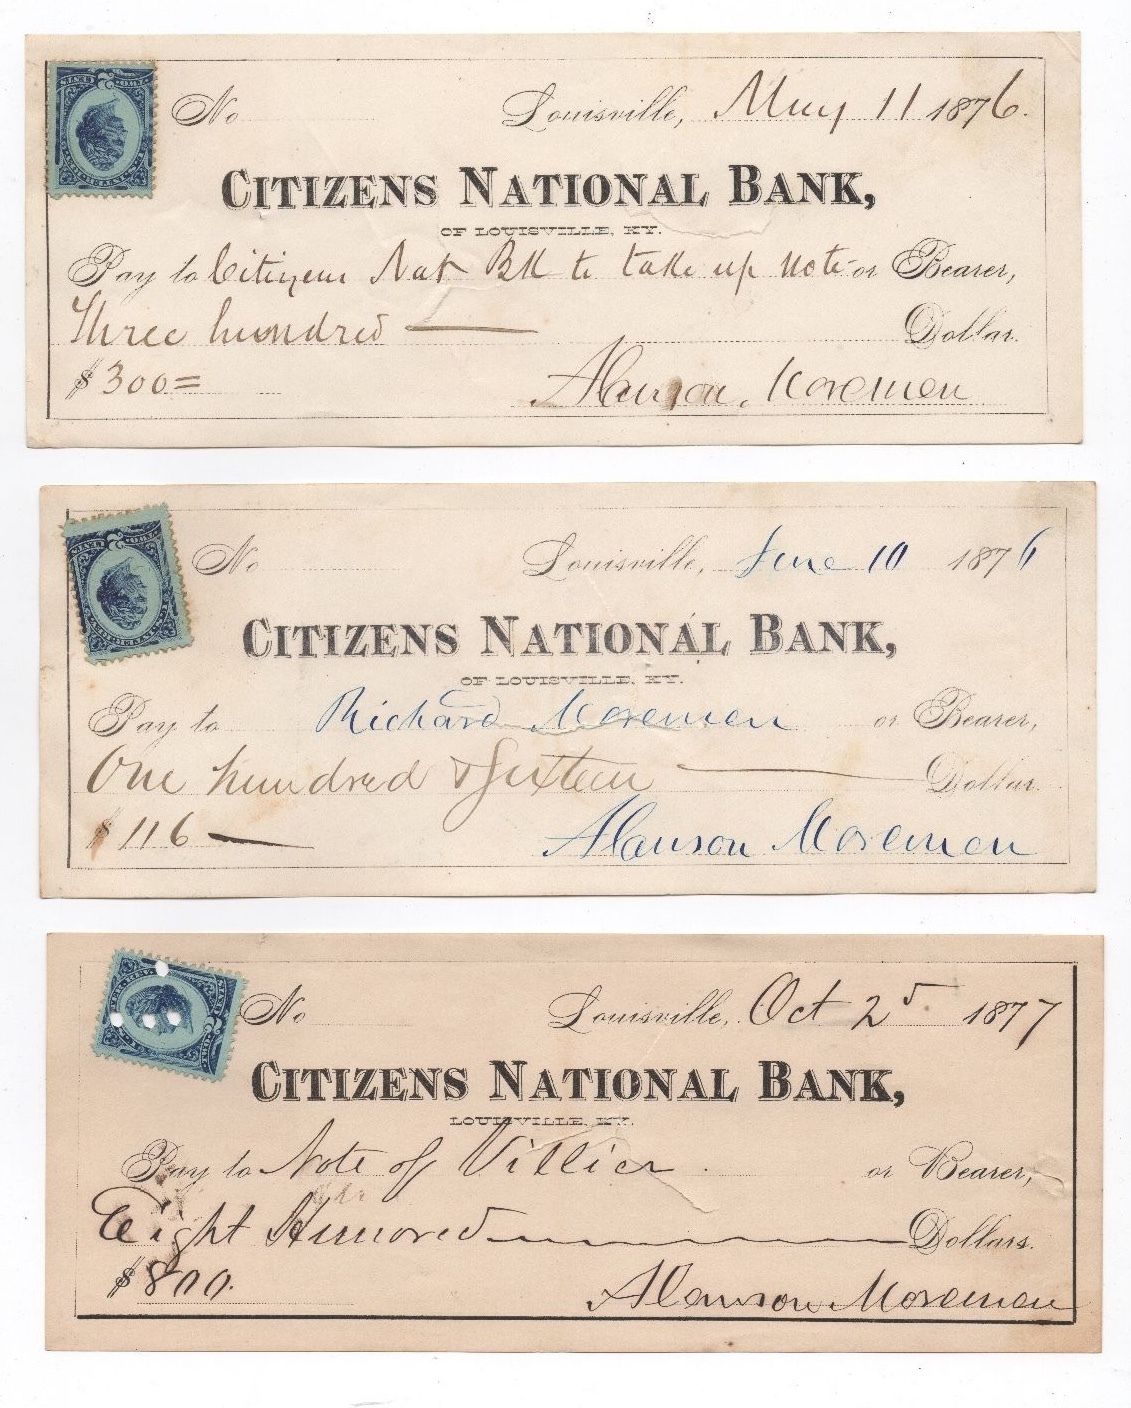 No Louisville, May 11 1876.
CITIZENS NATIONAL BANK,
OF LOUISVILLE, KY.
Pay to Citizens Nat Bk to take up note or Bearer,
Three hundred Dollar
$ 300=
Alanson Moremen
No Louisville, June 10 1876
CITIZENS NATIONAL BANK,
OF LOUISVILLE, KY.
Pay to Richard Moremen or Bearer,
One hundred & Sixteen Dollar
$ 116
Alanson Moremen
No Louisville, Oct 25 1877
CITIZENS NATIONAL BANK,
LOUISVILLE, KY.
Pay to Note of Villier or Bearer,
Eight Hundred Dollars.
$ 800.
Alanson Moremen